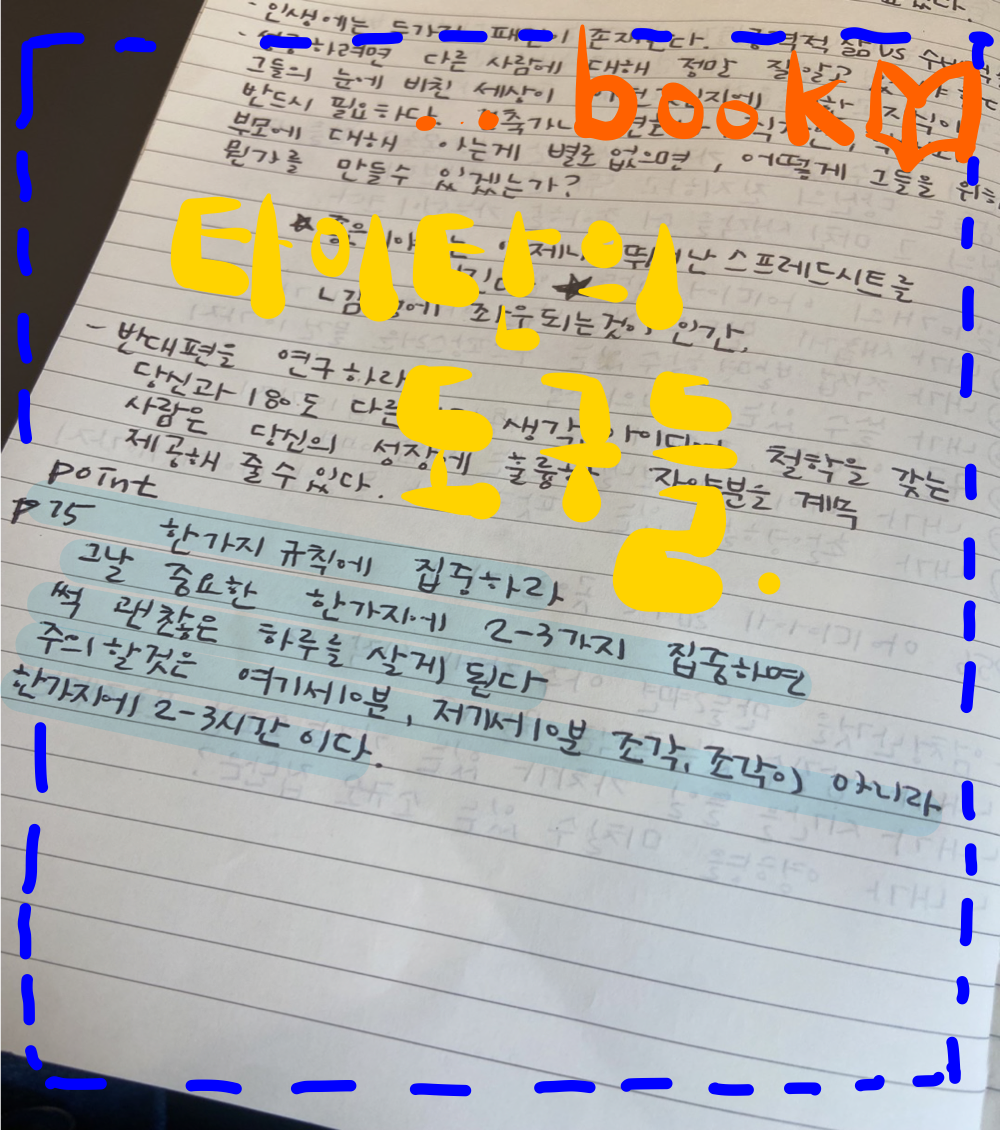 - 인생에는 두가지 패턴이 존재한다. 공격적 삶 VS
- 성공하려면 다른 사람에 대해 정말 잘 알고
그들의 눈에 비친 세상이
반드시 필요하다.
부모에 대해 아는게 별로 없으면, 어떻게 그들을 위해
뭔가를 만들수 있겠는가?
...book
타이탄의
도구들.
★ 좋은 이야기는 언제나 뛰어난 스프레드시트를
★
느낌 에 좌우되는것이 인간,
- 반대편을 연구하라
당신과 180도 다른 생각, 아이디어, 철학을 갖는
사람은 당신의 성장에 훌륭한 자양분을 계속
제공해 줄 수 있다.
point
P75 한가지 규칙에 집중하라
그날 중요한 한가지에 2-3가지 집중하면
썩 괜찮은 하루를 살게 된다
주의할것은 여기서10분, 저기서10분 조각, 조각이 아니라
한가지에 2-3시간 이다.